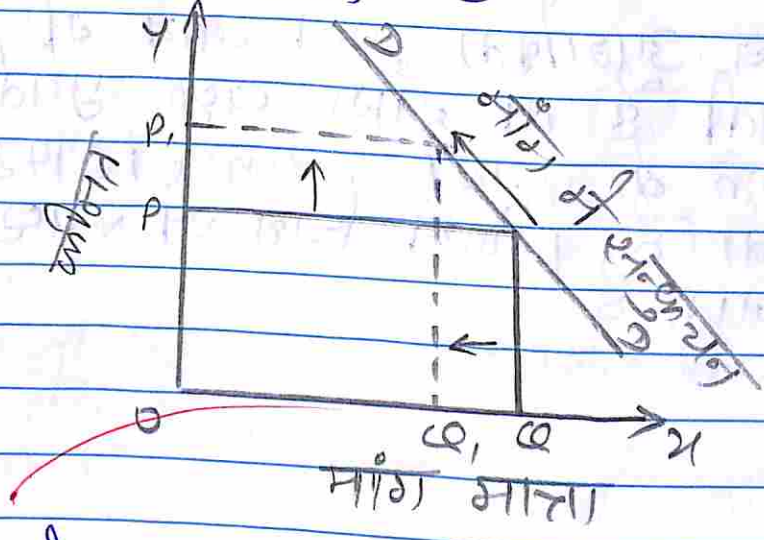 Y
D
P₁
P
कीमत
मांग में संकुचन
D
O
Q₁ Q X
मांग मात्रा